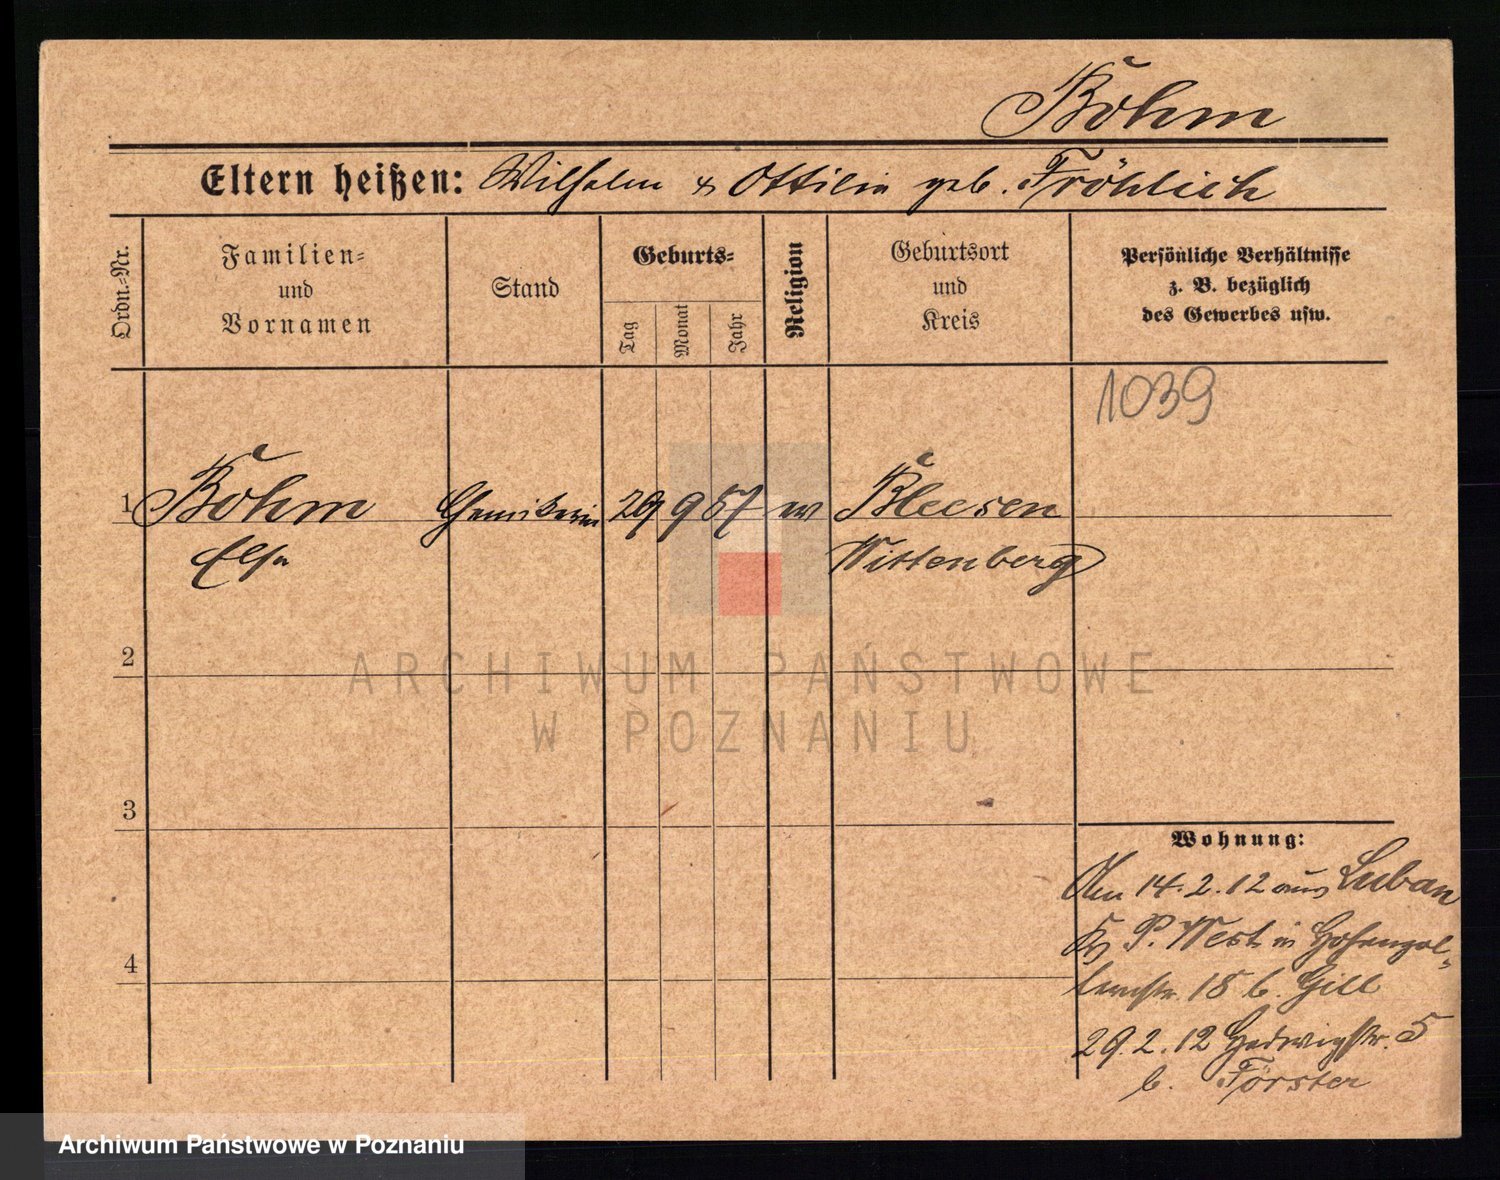 Böhm
Eltern heißen: Wilhelm & Ottilie geb. Fröhlich
Ordn.-Nr.
Familien-
und
Vornamen
Stand
Geburts-
Tag
Monat
Jahr
Religion
Geburtsort
und
Kreis
Persönliche Verhältnisse
z. B. bezüglich
des Gewerbes usw.
1039
1 Böhm 29 9 87 Bleesen
Else Wittenberg
2
3
4
Wohnung:
Am 14.2.12 aus Luban
Kr P. West in Hohenzol-
lernstr. 18 b. Gill
29.2.12 Hedwigstr. 5
b. Förster
ARCHIWUM PAŃSTWOWE
W POZNANIU
Archiwum Państwowe w Poznaniu